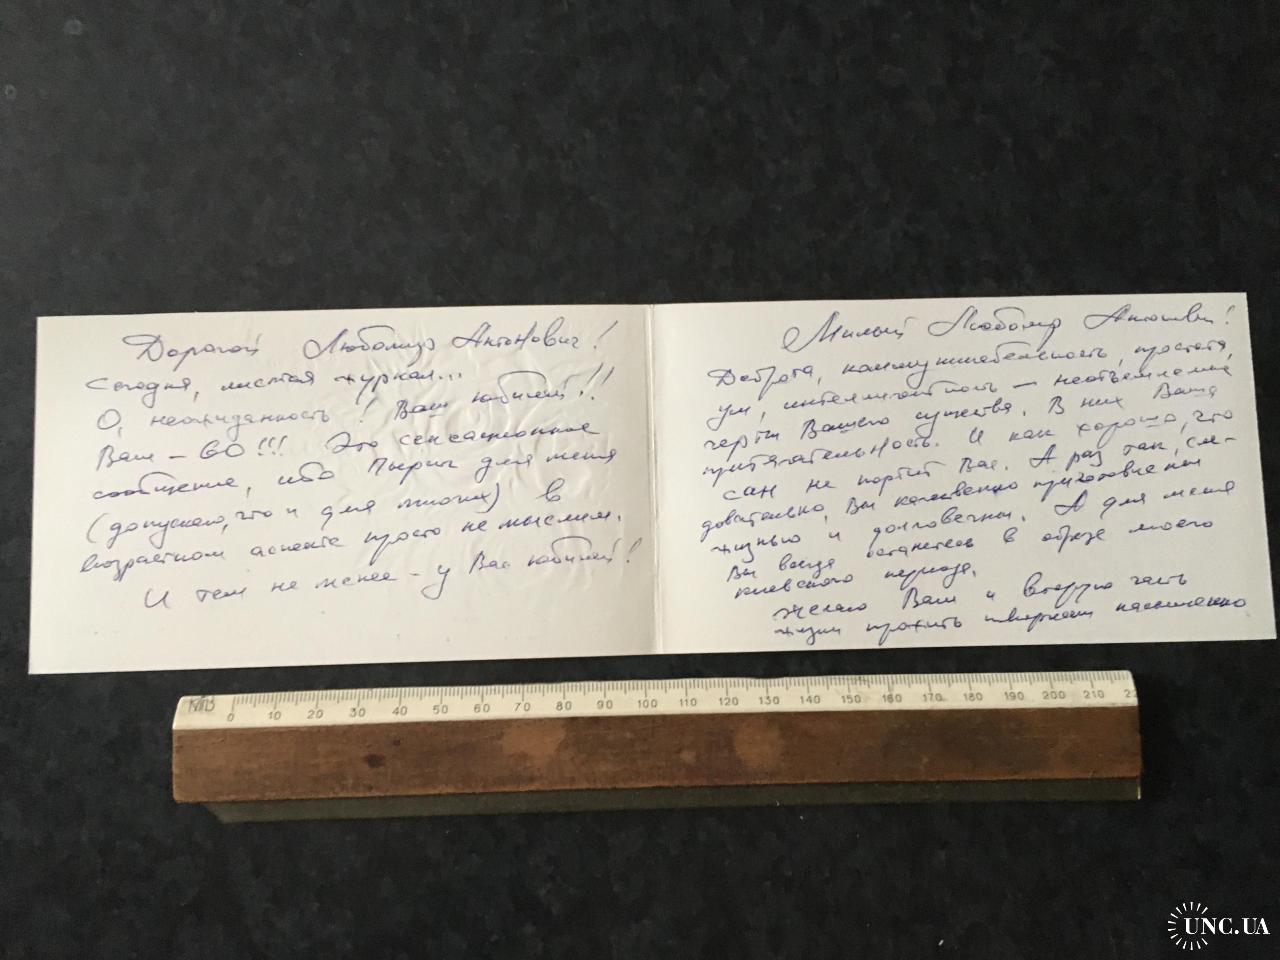 Дорогой Любомир Антонович!
Сегодня, листая журнал...
О, неожиданность! Ваш юбилей!!
Вам – 60!!! Это сенсационное
сообщение, ибо Пырич для меня
(допускаю, что и для многих) в
возрастном аспекте просто не мыслим.
И тем не менее – у Вас юбилей!
Милый Любомир Антонович!
Доброта, коммуникабельность, простота,
ум, интеллигентность – неотъемлемые
черты Вашего существа. В них Ваша
притягательность. И как хорошо, что
сан не портит Вас. А раз так, сле-
довательно, Вы качественно
жизнью и долговечны. А для меня
Вы всегда останетесь в образе моего
киевского периода.
Желаю Вам и вторую часть
жизни прожить насыщенно
MB
0 10 20 30 40 50 60 70 80 90 100 110 120 130 140 150 160 170 180 190 200 210 22
UNC.UA